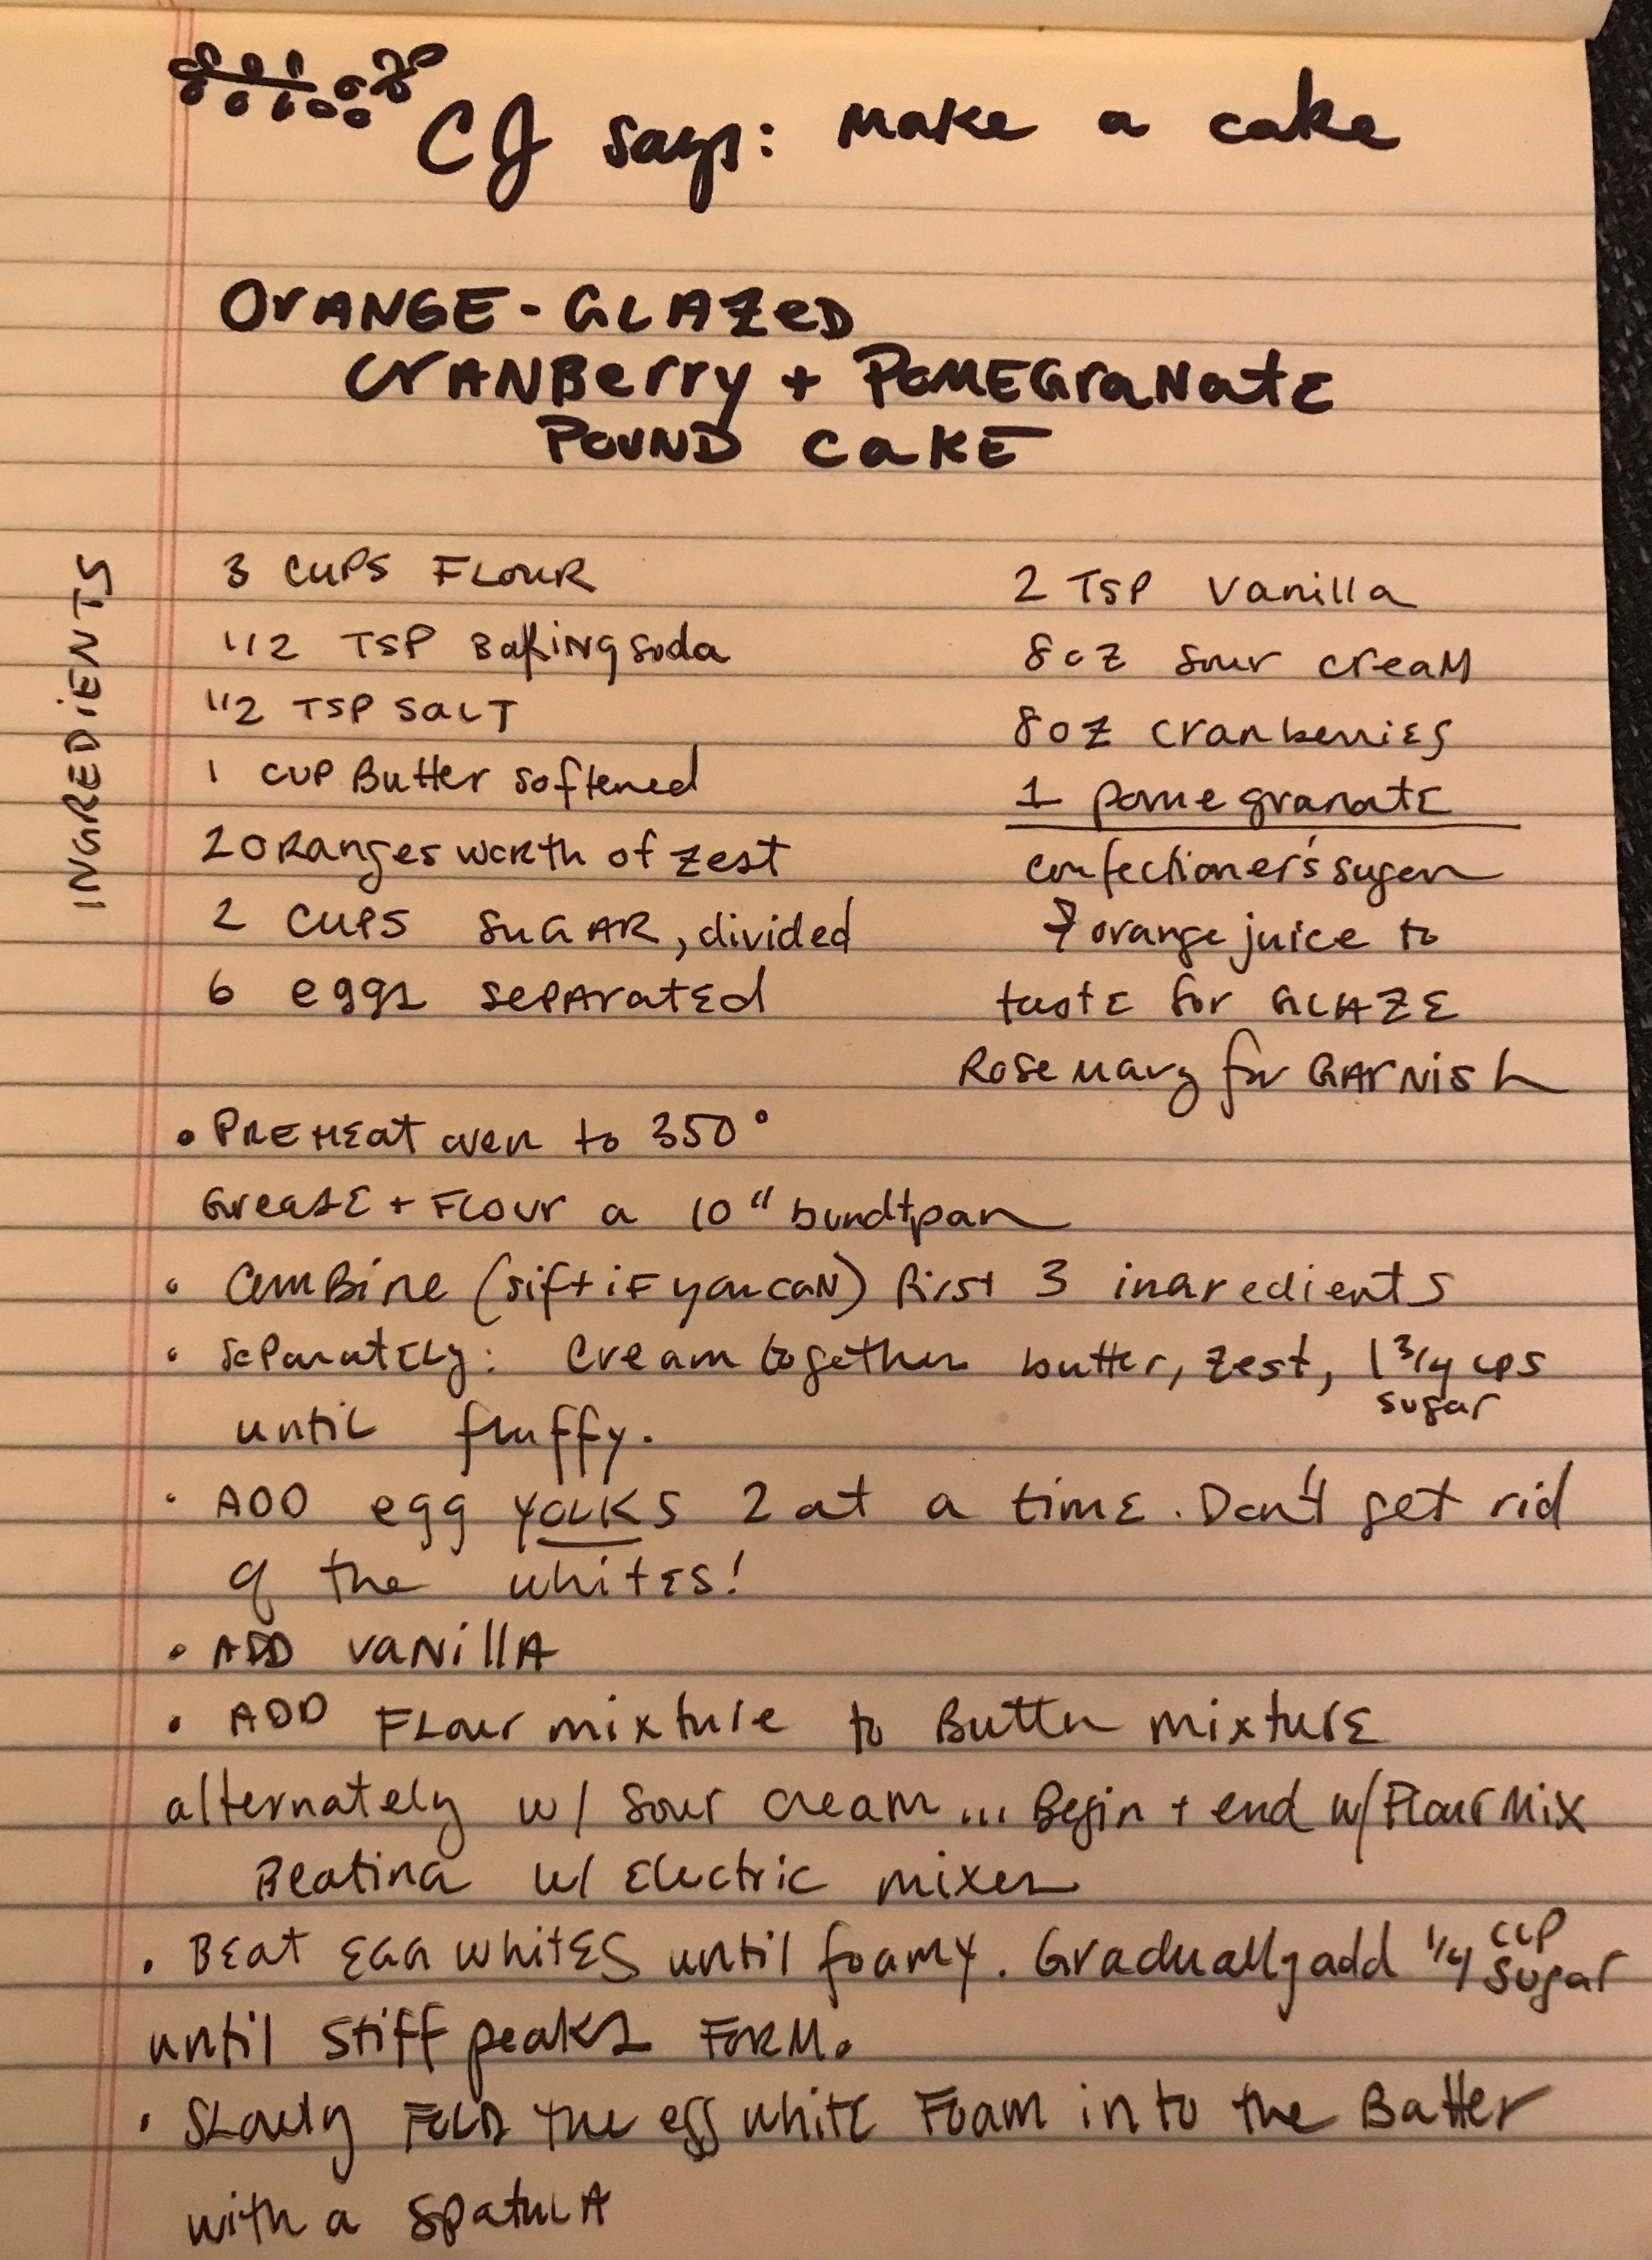 CJ says: Make a cake
ORANGE-GLAZED
CRANBERRY + POMEGRANATE
POUND CAKE
INGREDIENTS
3 CUPS FLOUR
1/2 TSP Baking soda
1/2 TSP SALT
1 CUP Butter softened
2 ORanges worth of zest
2 CUPS SUGAR, divided
6 eggs separated
2 TSP Vanilla
8oz sour cream
8oz cranberries
1 pomegranate
confectioner's sugar
+ orange juice to
taste for GLAZE
Rosemary for GARNISH
• PREHEAT oven to 350°
Grease + Flour a 10" bundt pan
• Combine (sift if you can) first 3 ingredients
• Separately: Cream together butter, zest, 1 3/4 cps
sugar
until fluffy.
• ADD egg yolks 2 at a time. Don't get rid
of the whites!
• ADD vanilla
• ADD Flour mixture to Butter mixture
alternately w/ sour cream... Begin + end w/ Flour Mix
Beating w/ Electric mixer
• Beat Egg whites until foamy. Gradually add 1/4 cup
sugar
until stiff peaks FORM.
• Slowly FOLD the egg white Foam into the Batter
with a spatula